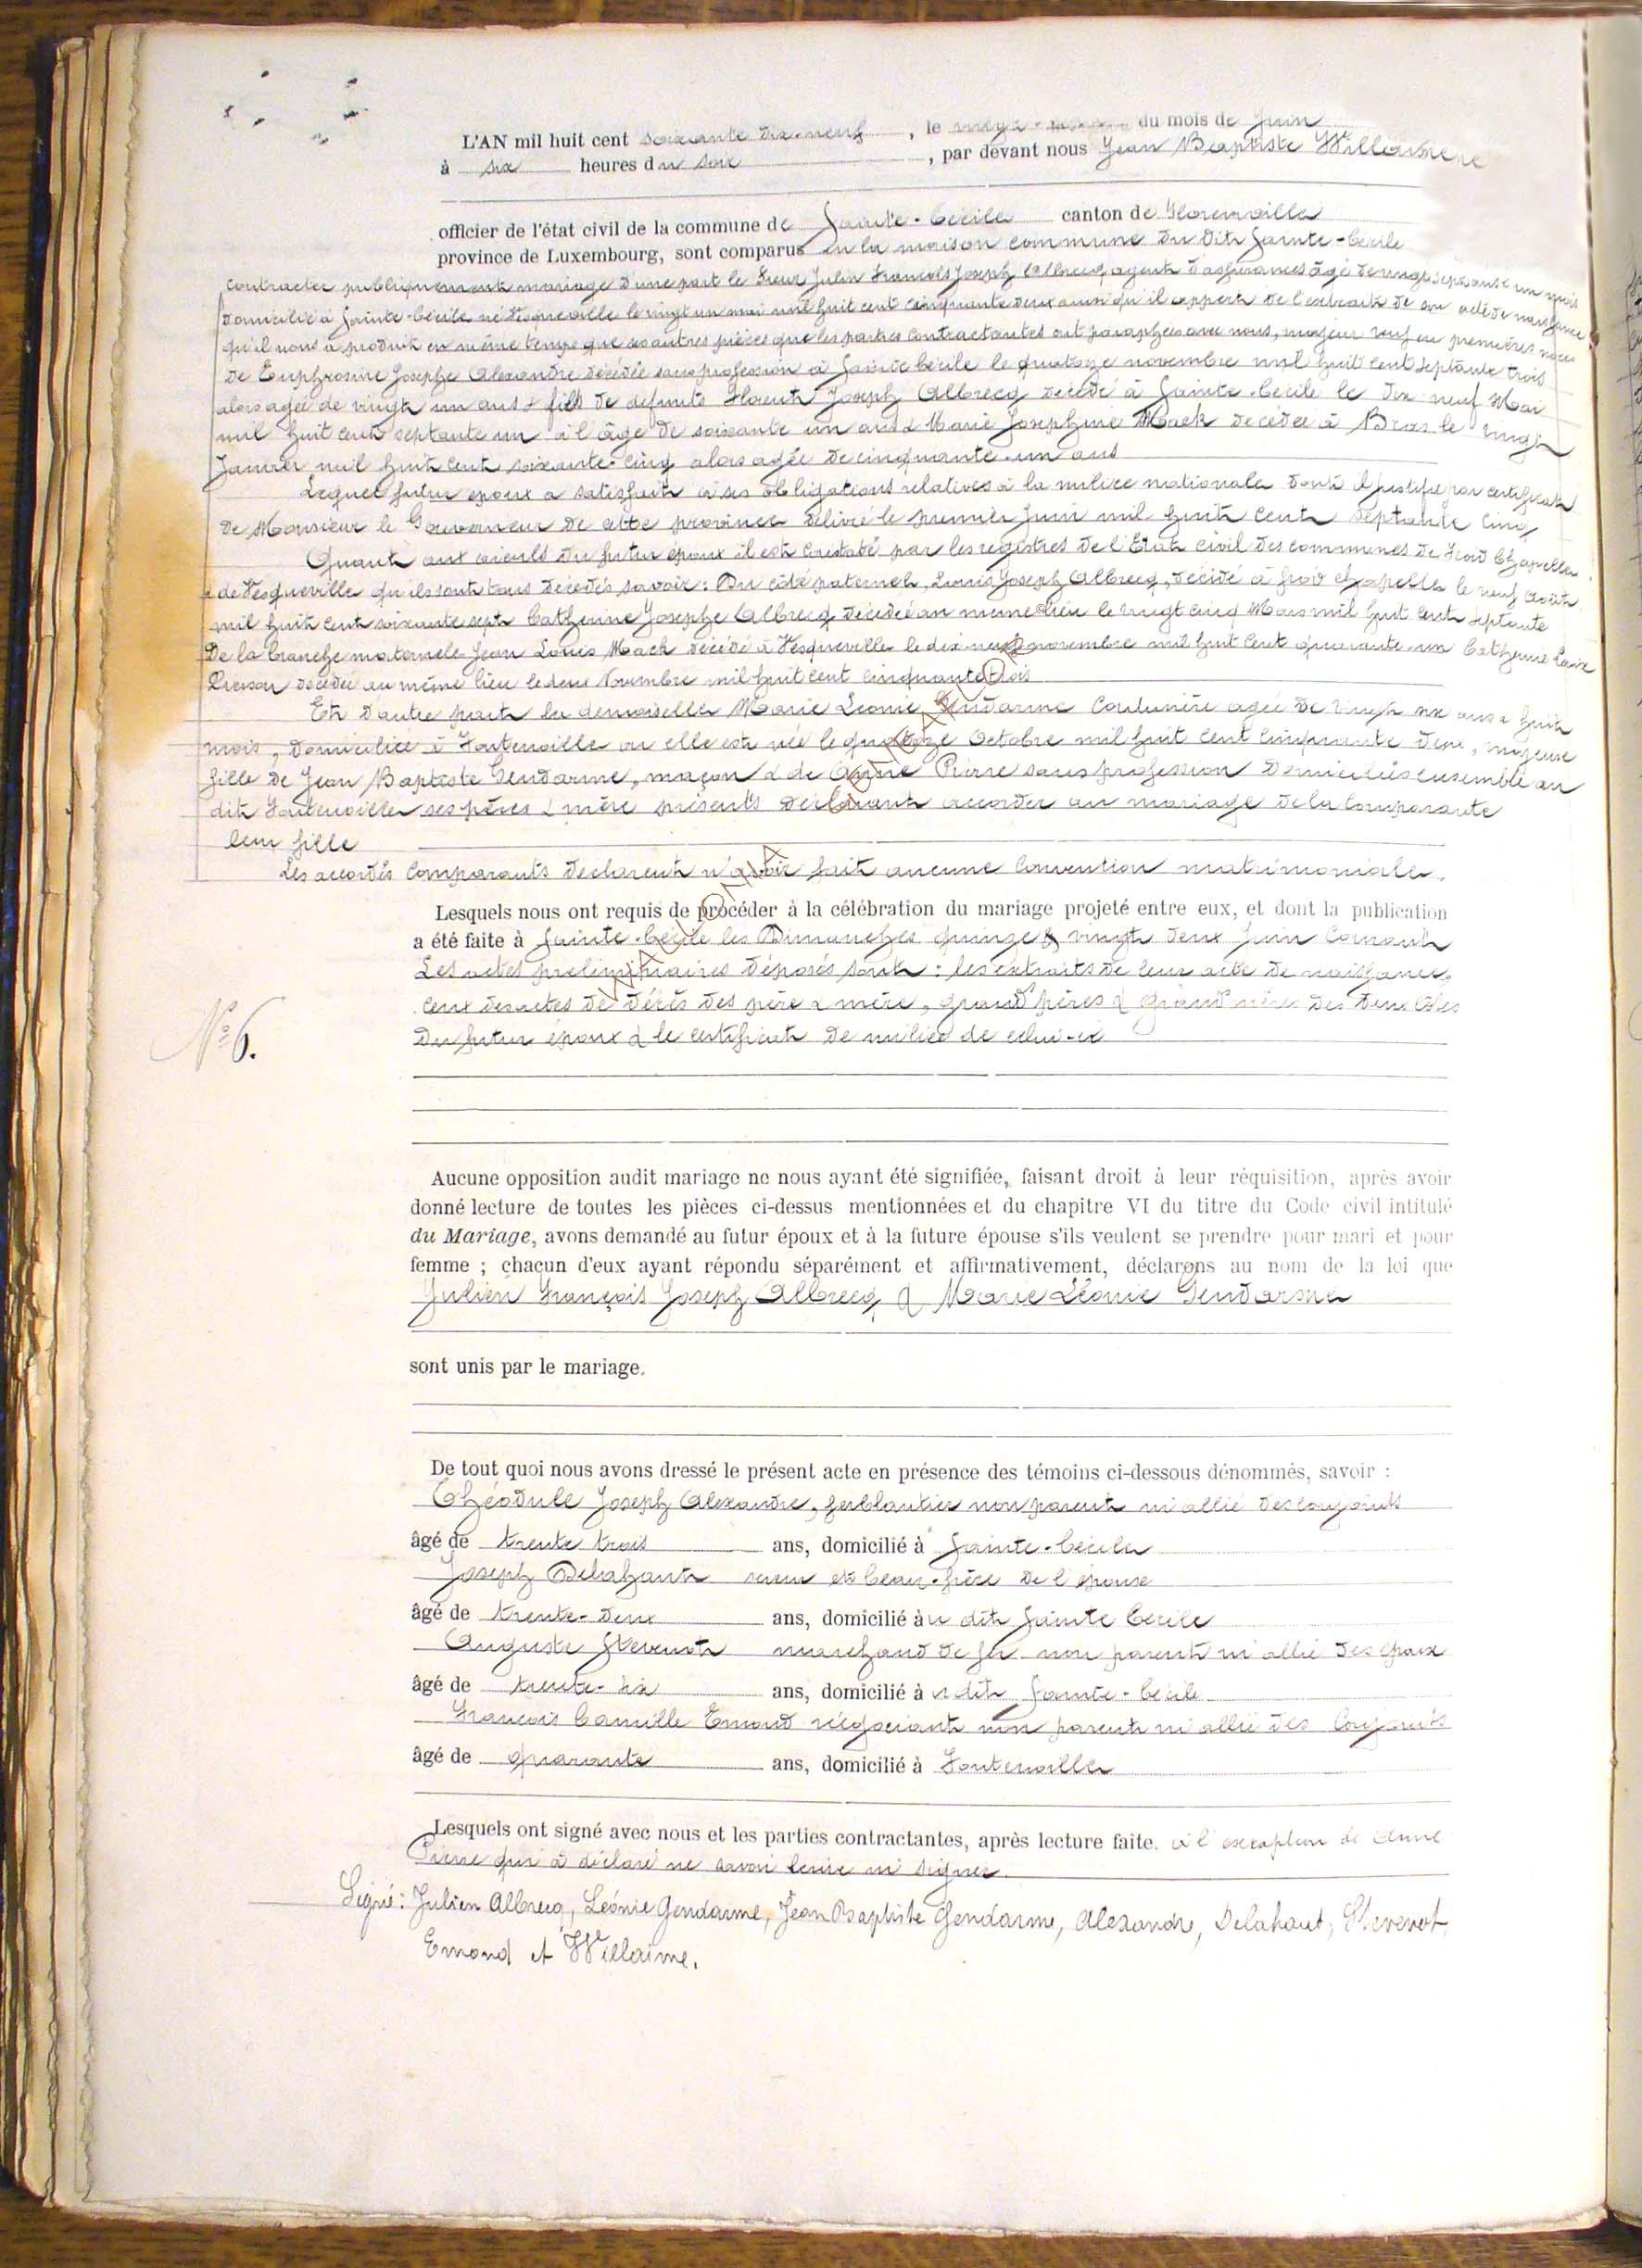 L'AN mil huit cent soixante dix-neuf, le du mois de Juin
à six heures du soir, par devant nous Jean Baptiste Willaime
officier de l'état civil de la commune de Sainte-Cécile canton de Florenville
province de Luxembourg, sont comparus en la maison commune du dit Sainte-Cécile
contracter publiquement mariage d'une part le sieur Julien François Joseph Albrecq agent d'assurances âgé de vingt sept ans & un mois
domicilié à Sainte-Cécile né à Vesqueville le vingt un mai mil huit cent cinquante deux ainsi qu'il appert de l'extrait de son acte de naissance
qu'il nous a produit en même temps que les autres pièces que les parties contractantes ont paraphées avec nous, majeur veuf en premières noces
de Euphrosine Josephe Alexandre décédée sans profession à Sainte Cécile le quatorze novembre mil huit cent septante trois
alors agée de vingt un ans & fils de defunts Florent Joseph Albrecq décédé à Sainte-Cécile le dix neuf Mai
mil huit cent septante un à l'âge de soixante un ans & Marie Josephine Mack décédée à Bras le vingt
Janvier mil huit cent soixante-cinq alors agée de cinquante-un ans
Lequel futur époux a satisfait à ses obligations relatives à la milice nationale dont il justifie par certificat
de Monsieur le Gouverneur de cette province délivré le premier Juin mil huit cent septante cinq
Quant aux aieuls du futur époux il est constaté par les registres de l'Etat civil des communes de Froid Chapelle
& de Vesqueville qu'ils sont tous décédés savoir: Du côté paternel, Louis Joseph Albrecq, décédé à froid chapelle le neuf Août
mil huit cent soixante sept Catherine Josephe Albrecq décédée au même lieu le vingt cinq Mars mil huit cent septante
De la branche maternele Jean Louis Mack décédé à Vesqueville le dix-neuf novembre mil huit cent quarante-un Catherine
décédée au même lieu le deux Novembre mil huit cent cinquante trois
Et d'autre part la demoiselle Marie Léonie Gendarme Couturière agée de vingt six ans & huit
mois, domiciliée à Fontenoille où elle est née le quatorze Octobre mil huit cent cinquante deux, majeure
fille de Jean Baptiste Gendarme, maçon & de Anne Pierre sans profession domiciliés ensemble au
dit Fontenoille ses père & mère présents déclarant accorder au mariage de la comparante
leur fille
Les accordés comparants déclarent n'avoir fait aucune convention matrimoniale.
Lesquels nous ont requis de procéder à la célébration du mariage projeté entre eux, et dont la publication
a été faite à Sainte-Cécile les Dimanches quinze & vingt deux Juin courant
Les actes préliminaires déposés sont: les extraits de leur acte de naissance,
ceux des actes de décès des père & mère, grand'pères & grand'mères des deux côtés
du futur époux & le certificat de milice de celui-ci
N° 6.
Aucune opposition audit mariage ne nous ayant été signifiée, faisant droit à leur réquisition, après avoir
donné lecture de toutes les pièces ci-dessus mentionnées et du chapitre VI du titre du Code civil intitulé
du Mariage, avons demandé au futur époux et à la future épouse s'ils veulent se prendre pour mari et pour
femme ; chacun d'eux ayant répondu séparément et affirmativement, déclarons au nom de la loi que
Julien François Joseph Albrecq & Marie Léonie Gendarme
sont unis par le mariage.
De tout quoi nous avons dressé le présent acte en présence des témoins ci-dessous dénommés, savoir :
Théodule Joseph Alexandre, ferblantier non parent ni allié des conjoints
âgé de trente trois ans, domicilié à Sainte-Cécile
Joseph Delahaut beau-frère de l'épouse
âgé de trente-deux ans, domicilié àu dit Sainte Cécile
Auguste Stevenot marchand de fer non parent ni allié des époux
âgé de trente-six ans, domicilié àu dit Sainte-Cécile
François Camille Emond négociant non parent ni allié des conjoints
âgé de quarante ans, domicilié à Fontenoille
Lesquels ont signé avec nous et les parties contractantes, après lecture faite. à l'exception de Anne
Pierre qui a déclaré ne savoir écrire ni signer.
Signé: Julien Albrecq, Léonie Gendarme, Jean Baptiste Gendarme, Alexandre, Delahaut, Stevenot,
Emond et Willaime.
WALLONIA GENEALOGIE